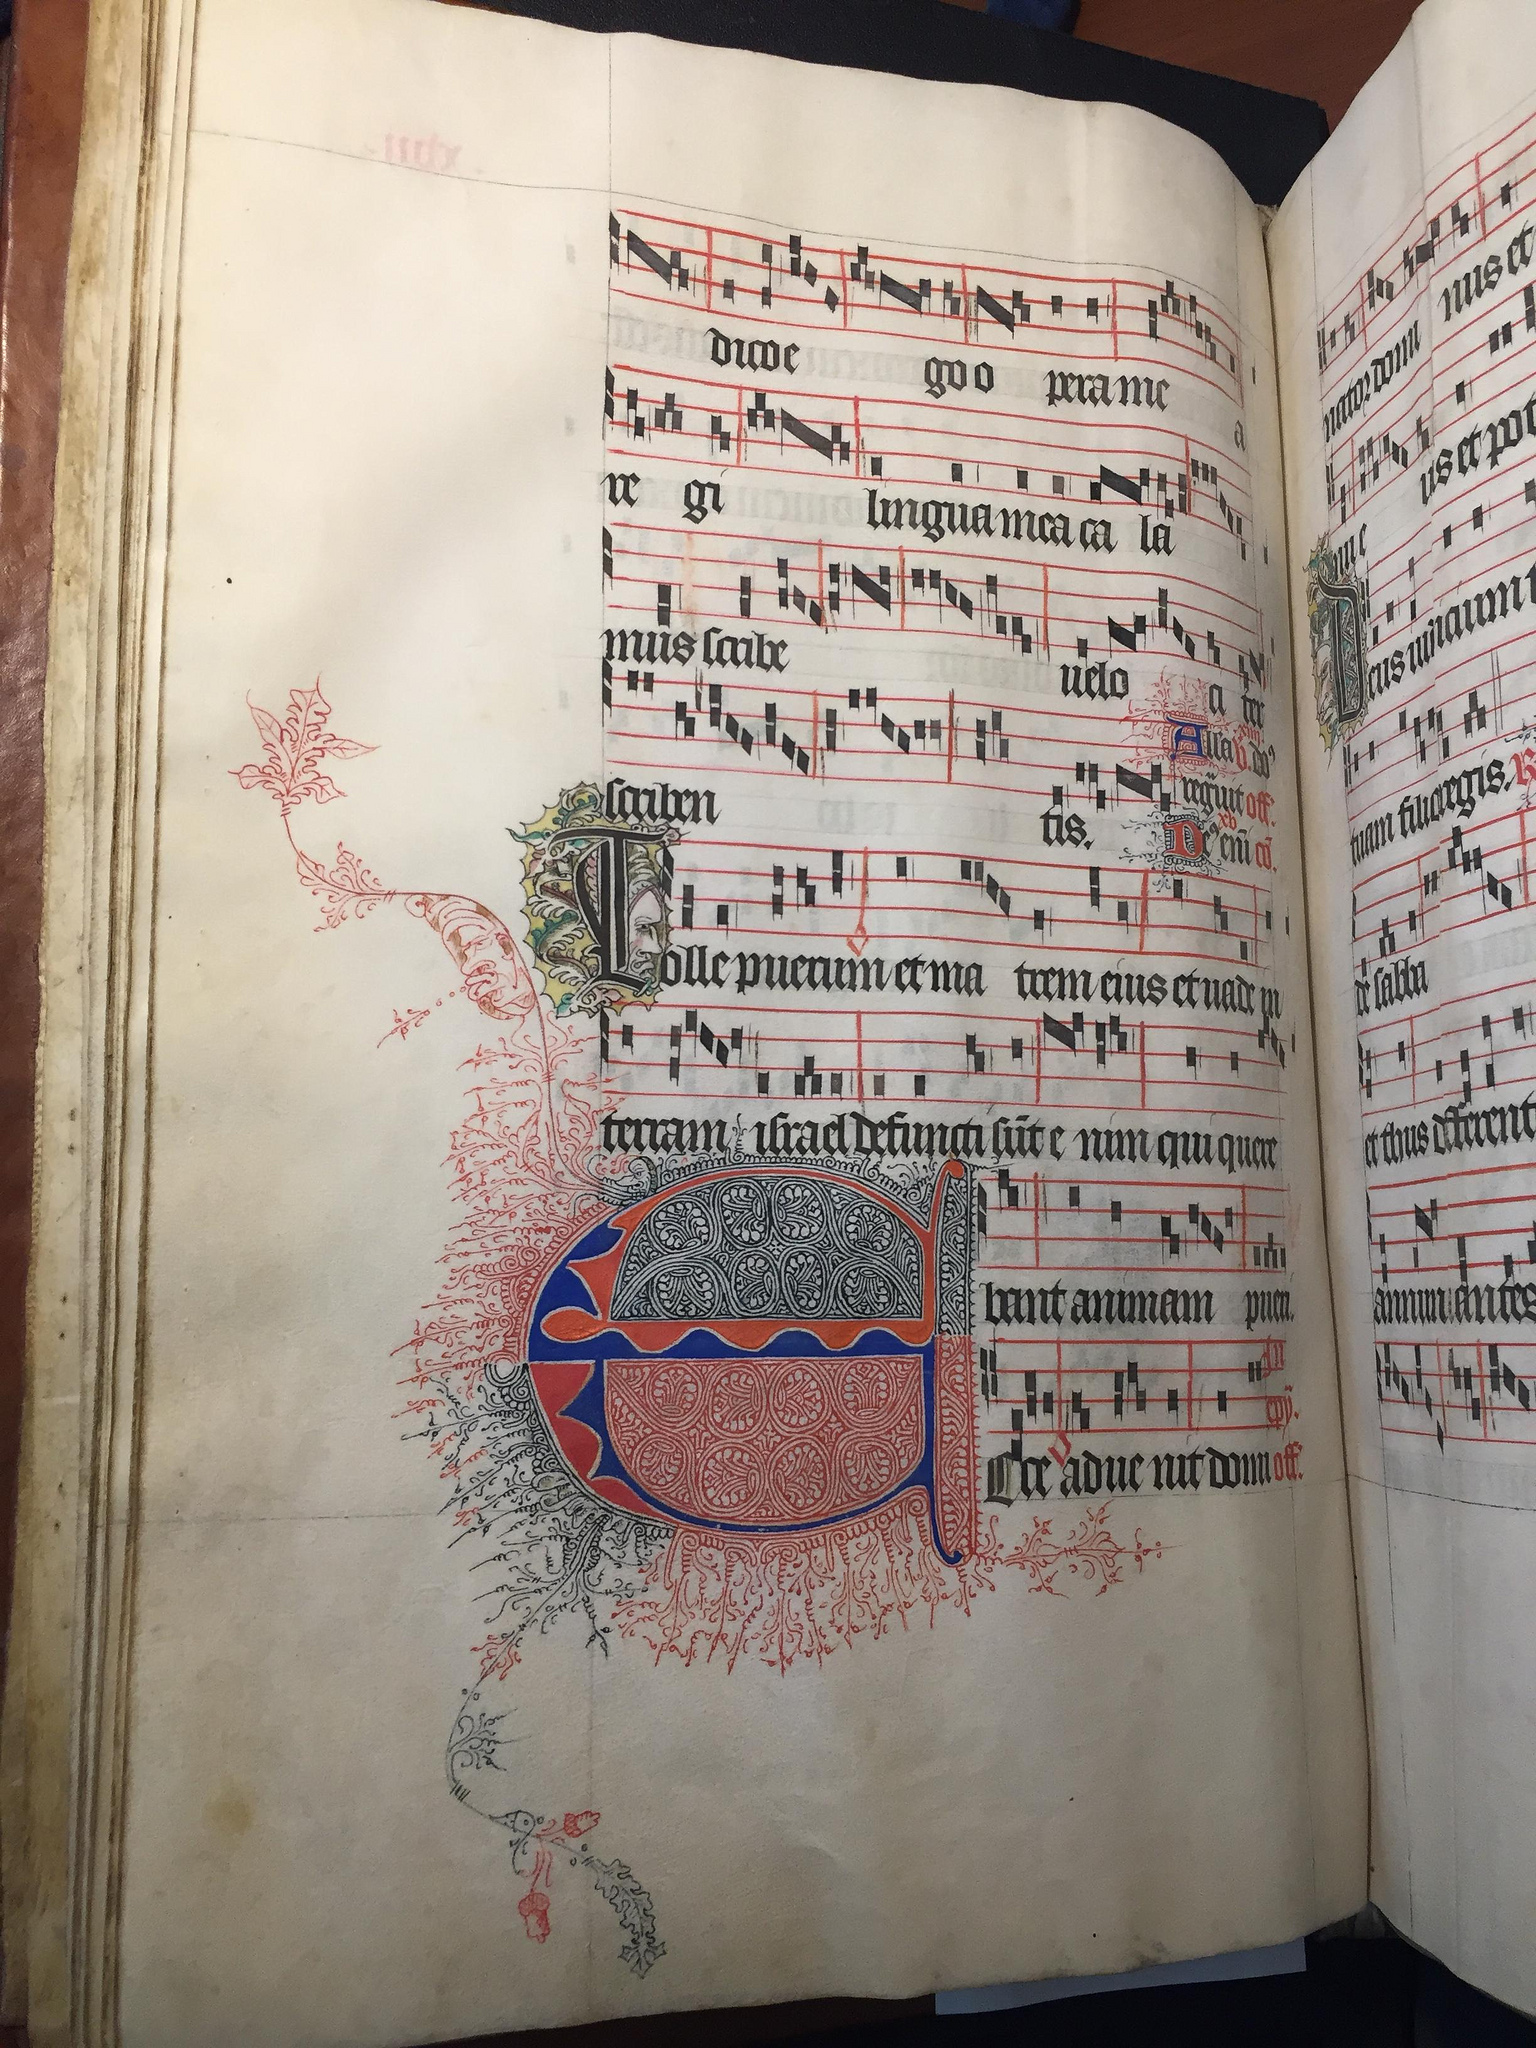 dico e go o pera me a
re gi lingua mea ca la
mus scribe uelo ci ter
scriben tis. Alla v. do
regnit off:
xv
De eni co:
Tolle puerum et ma trem eius et uade in
terram israel defuncti sūt e nim qui quere
bant animam pueri.
In
epy.
Ecce adue nit domi off:
nus et
nator domi
us et pot
mne
Deus iudicium t
tuam filio regis. R
de saba
et thus deferent
annunciantes